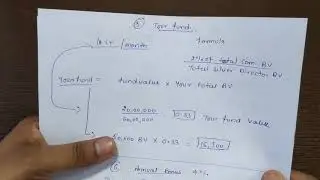 ⑤ Tour fund.
formula
month
total com. BV
Total Silver Director BV
Tourfund = fundvalue x Your total BV
20,00,000
60,00,000
0.33 Your fund value
50,000 BV X 0.33 = 16,500
⑥ Annual Bonus